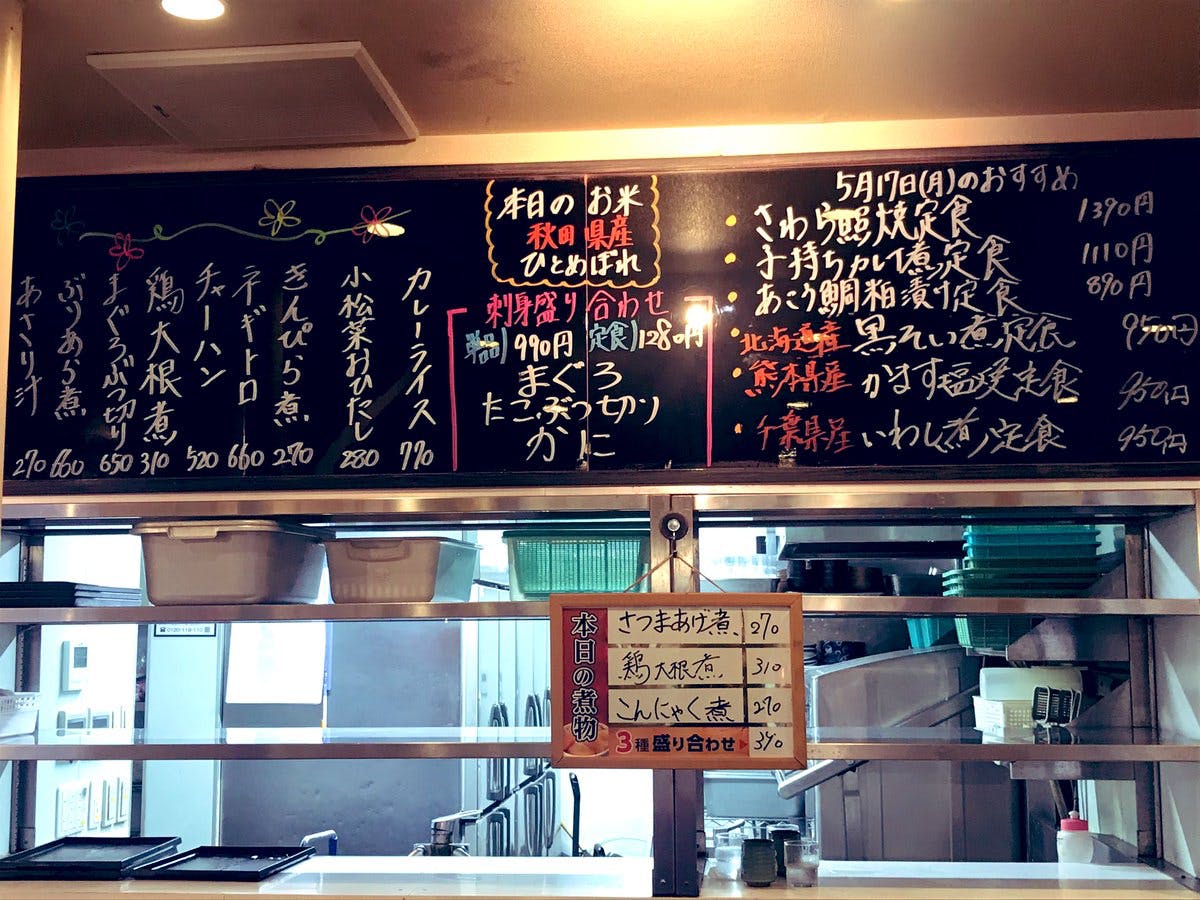 カレーライス 770
小松菜おひたし 280
きんぴら煮 270
ネギトロ 660
チャーハン 520
鶏大根煮 310
まぐろぶつ切り 650
ぶりあら煮 660
あさり汁 270
本日のお米
秋田県産
ひとめぼれ
刺身盛り合わせ
単品) 990円 定食) 1280円
まぐろ
たこぶつ切り
かに
5月17日(月)のおすすめ
・さわら照焼定食 1390円
・子持ちかれい煮定食 1110円
・あこう鯛粕漬け定食 890円
・北海道産 黒そい煮定食 950円
・熊本県産 かます塩焼定食 950円
・千葉県産 いわし煮定食 950円
本日の煮物
さつまあげ煮 270
鶏大根煮 310
こんにゃく煮 270
3種盛り合わせ 390